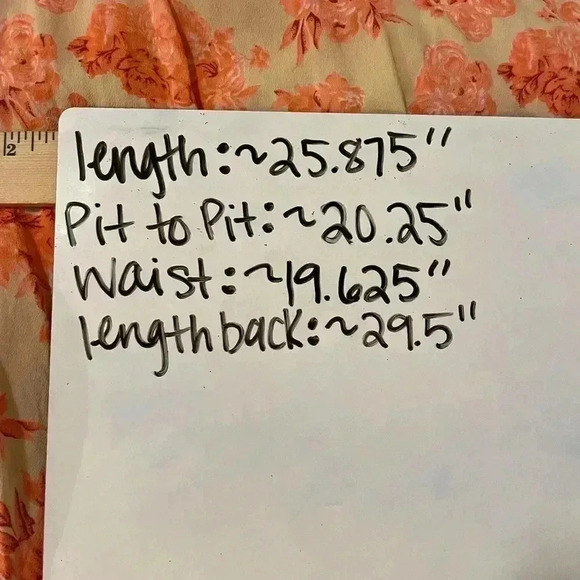 2
length: ~25.875"
Pit to Pit: ~20.25"
Waist: ~19.625"
length back: ~29.5"